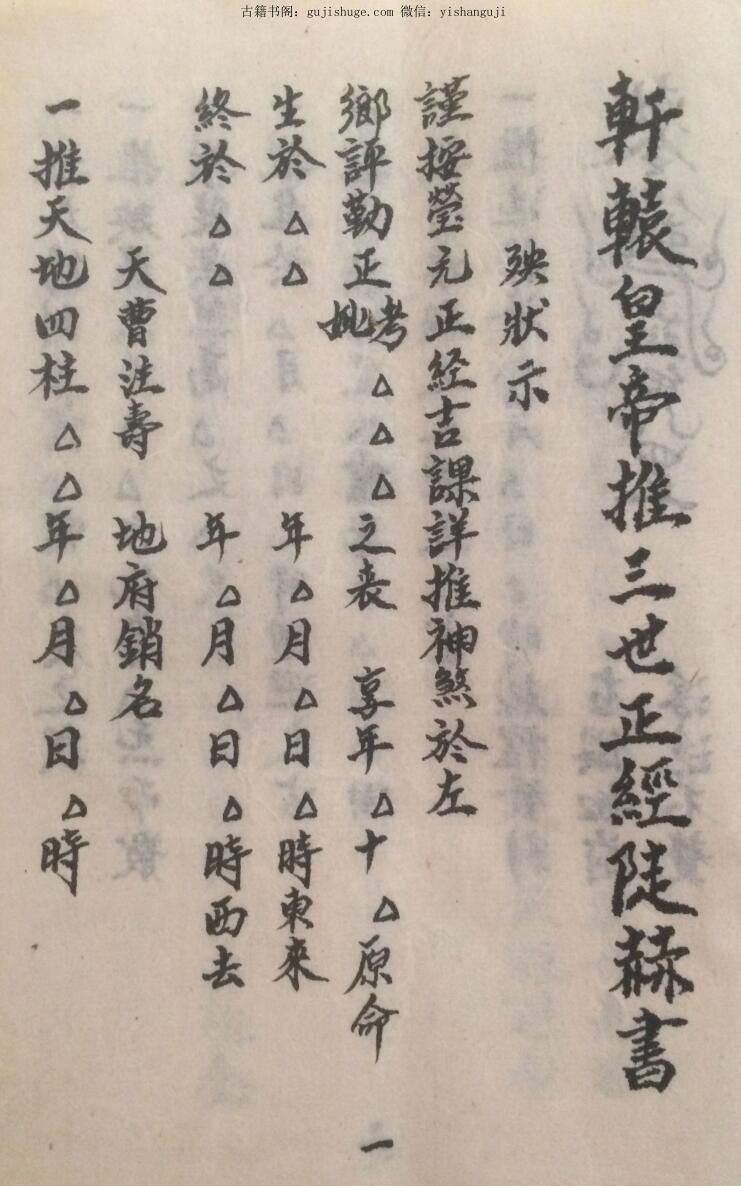 古籍书阁：gujishuge.com 微信：yishanguji
軒轅皇帝推三世正經陡赫書
殃狀示
謹按瑩元正经吉課詳推神煞於左
鄉評勤正考妣△△△之丧 享年△十△原命
生於△△年△月△日△時東來
終於△△年△月△日△時西去
天曹注壽 地府銷名
一推天地四柱△△年△月△日△時
一